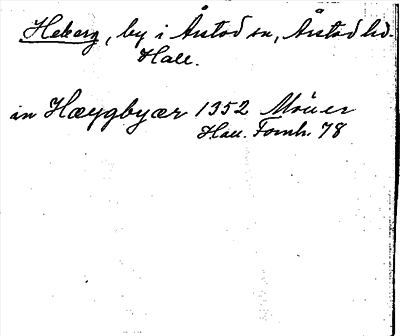 Heberg, by i Årstad sn, Årstad hd.
Hall.
in Hæygbyær 1352 Möller
Hall. Fornh. 78